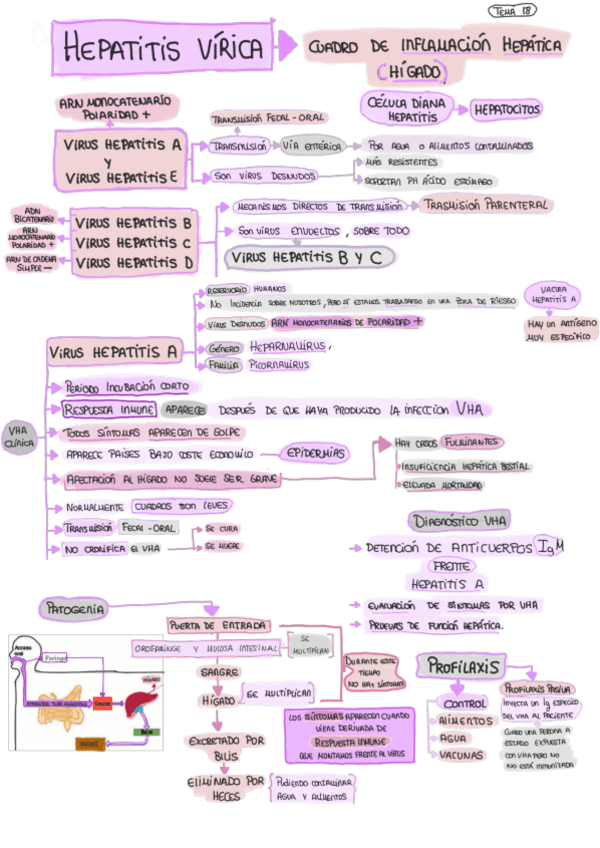 TEMA 18
HEPATITIS VÍRICA
CUADRO DE INFLAMACIÓN HEPÁTICA
(HÍGADO)
ARN MONOCATENARIO
POLARIDAD +
CÉLULA DIANA
HEPATITIS
HEPATOCITOS
TRANSMISIÓN FECAL-ORAL
VIRUS HEPATITIS A
Y
VIRUS HEPATITIS E
TRANSMISIÓN
VÍA ENTÉRICA
POR AGUA O ALIMENTOS CONTAMINADOS
SON VIRUS DESNUDOS
MÁS RESISTENTES
SOPORTAN PH ÁCIDO ESTÓMAGO
ADN
BICATENARIO
ARN
MONOCATENARIO
POLARIDAD +
ARN DE CADENA
SIMPLE -
VIRUS HEPATITIS B
VIRUS HEPATITIS C
VIRUS HEPATITIS D
MECANISMOS DIRECTOS DE TRANSMISIÓN
TRASMISIÓN PARENTERAL
SON VIRUS ENVUELTOS, SOBRE TODO
VIRUS HEPATITIS B Y C
VIRUS HEPATITIS A
RESERVORIO HUMANOS
NO INCIDENCIA SOBRE NOSOTROS, PERO SÍ ESTAMOS TRABAJANDO EN UNA ZONA DE RIESGO
VIRUS DESNUDOS ARN MONOCATENARIOS DE POLARIDAD +
GÉNERO HEPARNAVIRUS,
FAMILIA PICORNAVIRUS
VACUNA
HEPATITIS A
HAY UN ANTÍGENO
MUY ESPECÍFICO
VHA
CLÍNICA
PERIODO INCUBACIÓN CORTO
RESPUESTA INMUNE APARECE DESPUÉS DE QUE HAYA PRODUCIDO LA INFECCIÓN VHA
TODOS SÍNTOMAS APARECEN DE GOLPE
APARECE PAISES BAJO COSTE ECONOMICO
EPIDEMIAS
AFECTACIÓN AL HÍGADO NO SUELE SER GRAVE
HAY CASOS FULMINANTES
INSUFICIENCIA HEPÁTICA BESTIAL
ELEVADA MORTALIDAD
NORMALMENTE CUADROS SON LEVES
TRANSMISIÓN FECAL-ORAL
NO CRONIFICA EL VHA
SE CURA
SE MUERE
DIAGNÓSTICO VHA
DETENCIÓN DE ANTICUERPOS IgM
FRENTE
HEPATITIS A
EVALUACIÓN DE SÍNTOMAS POR VHA
PRUEBAS DE FUNCIÓN HEPÁTICA.
PATOGENIA
PUERTA DE ENTRADA
OROFARINGE Y MUCOSA INTESINAL
SE
MULTIPLICAN
SANGRE
HÍGADO
SE MULTIPLICAN
EXCRETADO POR
BILIS
ELIMINADO POR
HECES
PUDIENDO CONTAMINAR
AGUA Y ALIMENTOS
DURANTE ESTE
TIEMPO
NO HAY SÍNTOMAS
LOS SÍNTOMAS APARECEN CUANDO
VIENE DERIVADA DE
RESPUESTA INMUNE
QUE MONTAMOS FRENTE AL VIRUS
Faringe
PROFILAXIS
CONTROL
ALIMENTOS
AGUA
VACUNAS
PROFILAXIS PASIVA
INYECTA UN Ig ESPECÍFICO
DEL VHA AL PACIENTE
CUADO UNA PERSONA A
ESTADO EXPUESTA
CON VHA PERO NO
NO ESTÁ INMUNIZADA